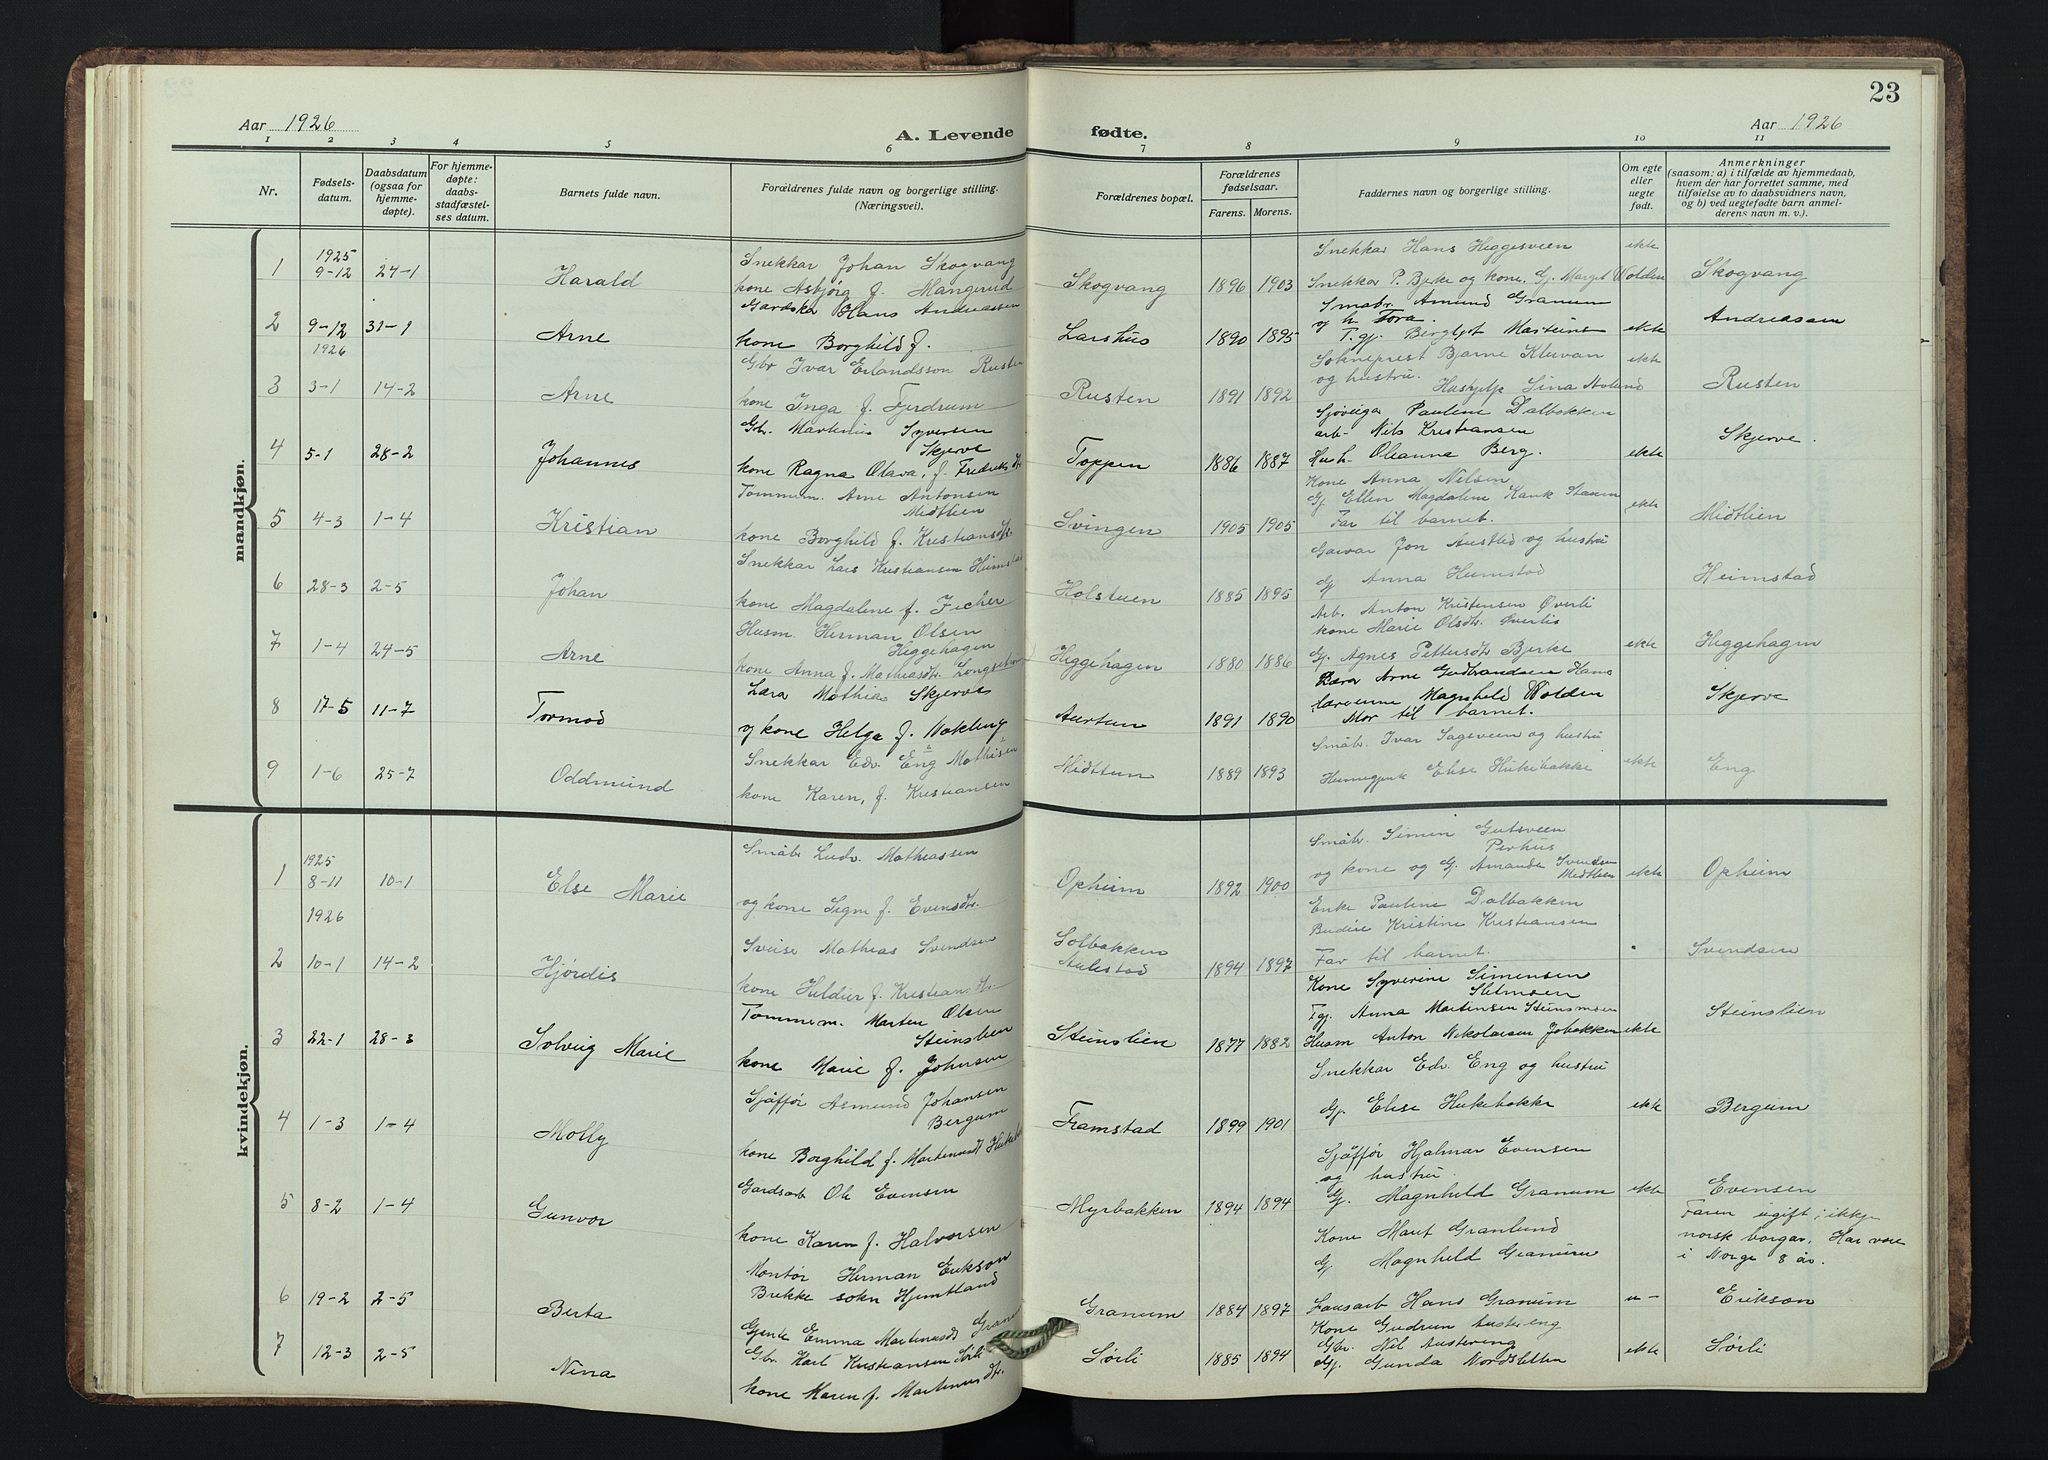 23
Aar 1926
A. Levende fødte.
Aar 1926
1 2 3 4 5 6 7 8 9 10 11
Nr.
Fødselsdatum.
Daabsdatum (ogsaa for hjemmedøpte).
For hjemmedøpte: daabsstadfæstelses datum.
Barnets fulde navn.
Forældrenes fulde navn og borgerlige stilling. (Næringsvei).
Forældrenes bopæl.
Forældrenes fødselsaar.
Farens. Morens.
Faddernes navn og borgerlige stilling.
Om egte eller uegte født.
Anmerkninger (saasom: a) i tilfælde av hjemmedaab, hvem der har forrettet samme, med tilføielse av to daabsvidners navn, og b) ved uegtefødte barn anmelderens navn m. v.).
mandkjøn.
1 1925 9-12 24-1 Harald
Snekkar Johan Skogvang
kone Asbjørg f. Mangerud
Skogvang 1896 1903
Snekkar Hans Heggesveen
Snekkar P. Bjerke og kone. Gj. Margit Volden
ekte Skogvang
2 9-12 31-1 Arne
Gardskar Hans Andreassen
kone Borghild f.
Larshus 1890 1895
Småbr. Amund Granum
og h. Tora.
T. gj. Bergljot Martins
ekte Andreasen
1926
3 3-1 14-2 Arne
Gbr Ivar Erlandsson Rusten
kone Inga f. Fjerdrum
Rusten 1891 1892
Sokneprest Bjarne Kluvan
og hustru.
ekte Rusten
4 5-1 28-2 Johannes
Gbr. Martinius Syversen
Skjerve
kone Ragna Olava, f. Fredriks
Toppen 1886 1887
Pauline Dalbakken
arb- Nils Kristiansen
Hush. Oleanna Berg.
ekte Skjerve.
5 4-3 1-4 Kristian
Tømmerm. Arne Antonsen
Midtlien
kone Borghild f. Kristiansdtr
Svingen 1905 1905
Kone Anna Nilsen
Gj Ellen Magdalene
Far til barnet.
ekte Midtlien
6 28-3 2-5 Johan
Snekkar Lars Kristiansen Heimstad
kone Magdalene f. Ficher
Holstuen 1885 1895
Garvar Jon Austlid og hustru
Gj Anna Heimstad
Heimstad
7 1-4 24-5 Arne
Husm. Herman Olsen
Heggehagen
kone Anna f. Mathiasdtr.
Heggehagen 1880 1886
Arb. Anton Kristensen Øverli
kone Marie Olsdtr. Øverli
Gj. Agnes Pettersdtr Bjerke
ekte Heggehagen
8 17-5 11-7 Tormod
Lærar Mathias Skjerve
og kone Helga f. Nokleng
Aurtun 1891 1890
Lærar Arne Gudbrandsen
lærerinne Magnhild Volden
Mor til barnet.
Skjerve
9 1-6 25-7 Oddmund
Snekkar Edv. Eng Mathisen
kone Karen, f. Kristiansen
Midttun 1889 1893
Småbr. Ivar Sagsveen og hustru
Elise Hukebakke
ekte Eng
kvindekjøn.
1 1925 8-11 10-1 Else Marie
Småbr Ludv. Mathiassen
og kone Signe f. Evensdtr.
Opheim 1892 1900
Småbr. Simen Gutsveen
Perhus
og kone og Gj. Amanda Svendsen
Midtlien
ekte Opheim
1926
2 10-1 14-2 Hjørdis
Sveise Mathias Svendsen
kone Heldier f. Kristians dtr.
Solbakken
Aulestad
1894 1897
Enke Pauline Dalbakken
Budeie Kristine Kristiansen
Far til barnet.
" Svendsen
3 22-1 28-3 Solveig Marie
Tømmerm. Marten Olsen
Steinslien
kone Marie f. Johnsen
Steinslien 1877 1882
Kone Syverine Simensen
T gj. Anna Martensen
Husm Anton Nikolaisen Jobakken
ekte Steinslien
4 1-3 1-4 Molly
Sjåffør Asmund Johansen
Bergum
kone Borghild f. Martinusdt
Framstad 1899 1901
Snekkar Edv. Eng og hustru
Gj. Elise Hukebakke
ekte Bergum
5 8-2 1-4 Gunvor
Gardsarb Ole Evensen
kone Karen f. Halvorsen
Myrbakken 1894 1894
Sjåffør Hjalmar Evensen
og hustru.
Gj. Magnhild Granum
ekte Evensen
6 19-2 2-5 Berta
Montør Herman Erikson
Brekke sokn Hjemtland
Gjente Emma Martinusdt Granum
Granum 1884 1897
Kone Marit Granlund
Gj. Magnhild Granum
Hans Granum
u- Erikson
Faren ugift; ikkje
norsk borgar. Har vore
i Norge 8 år.
7 12-3 2-5 Nina
Gbr. Karl Kristiansen Sørli
kone Karen f. Martinus dtr.
Sørli 1885 1894
Kone Gudrun Austreng
Gbr. Nil Austreng
Gj. Gunda Nordsletten
ekte Sørli